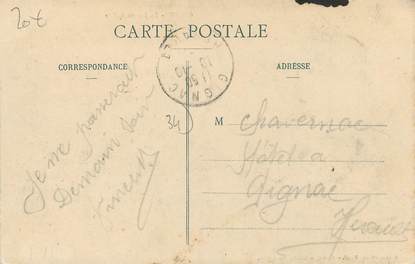 20€
CARTE POSTALE
CORRESPONDANCE
ADRESSE
GIGNAC
34
Je ne passerait
Demain soir
M Chavernac
Hôtel
Gignac
Herault